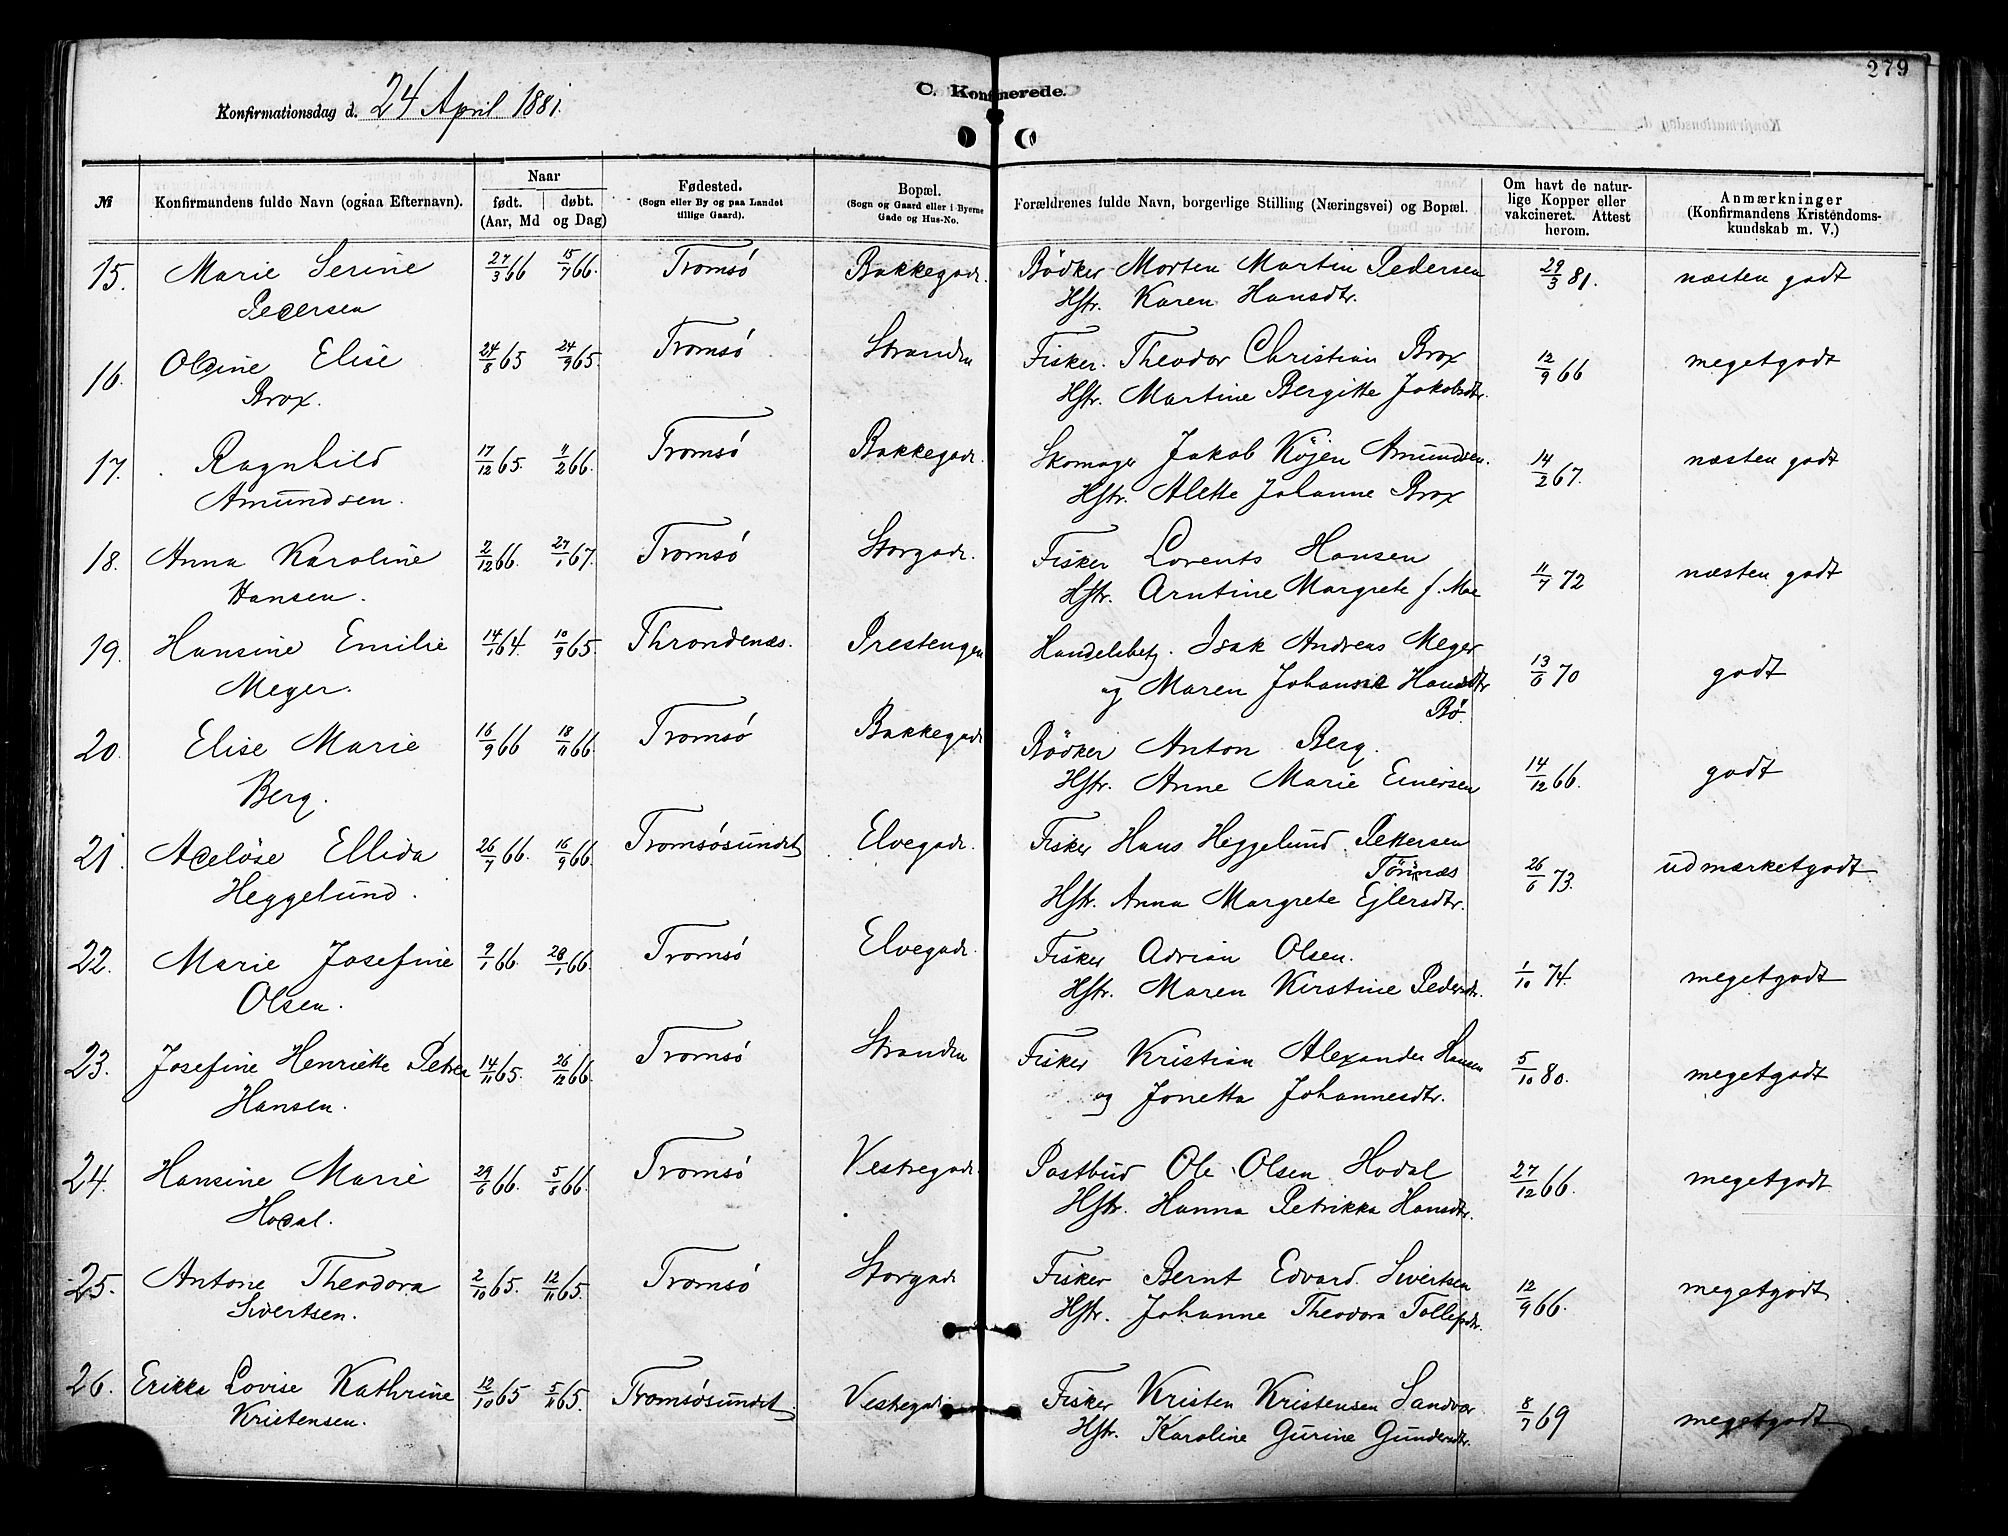 279
C. Konfirmerede.
Konfirmationsdag d. 24 April 1881.
№
Konfirmandens fulde Navn (ogsaa Efternavn).
Naar
født. døbt.
(Aar, Md og Dag)
Fødested.
(Sogn eller By og paa Landet
tillige Gaard).
Bopæl.
(Sogn og Gaard eller i Byerne
Gade og Hus-No.
Forældrenes fulde Navn, borgerlige Stilling (Næringsvei) og Bopæl.
Om havt de natur-
lige Kopper eller
vakcineret. Attest
herom.
Anmærkninger
(Konfirmandens Kristendoms-
kundskab m. V.)
15. Marie Serine 27/3 66 15/7 66. Tromsö Bakkegadr. Bödker Morten Martin Pedersen 29/3 81. næsten godt
Pedersen Hstr. Karen Hansdtr.
16. Oldine Elise 24/8 65 24/9 65. Tromsö Stranden Fisker. Theodor Christian Brox 12/9 66 megetgodt
Brox. Hstr. Martine Bergitte Jakobsdtr.
17. Ragnhild 17/12 65. 11/2 66. Tromsö Bakkegadr. Skomager Jakob Köjen Amundsen. 14/2 67. næsten godt
Amundsen. Hstr. Alette Johanne Brox
18. Anna Karoline 2/12 66. 27/1 67. Tromsö Storgadr. Fisker Lorents Hansen 11/7 72 næsten godt
Hansen. Hstr. Arntine Margrete f. Moe
19. Hansine Emilie 14/1 64. 10/9 65. Throndenæs. Prestengen Handelsbetj. Isak Andreas Meyer 13/6 70 godt
Meyer. og Maren Johanne Hansdtr
Bö.
20. Elise Marie 16/9 66 18/11 66. Tromsö Bakkegadr Bödker Anton Berg. 14/12 66. godt
Berg. Hstr. Anne Marie Einersen
21. Adelöse Ellida 26/7 66. 16/9 66. Tromsösundet Elvegadr. Fisker Hans Heggelund Pettersen 26/6 73. udmærketgodt
Tönnæs
Heggelund. Hstr. Anna Margrete Ejlersdtr.
22. Marie Josefine 9/1 66. 28/1 66. Tromsö Elvegadr. Fisker Adrian Olsen. 1/10 74. megetgodt
Olsen. Hstr. Maren Kirstine Pedersdtr.
23. Josefine Henriette Petrea 14/11 65. 26/12 66. Tromsö Stranden Fisker Kristian Alexander Hansen 5/10 80. megetgodt
Hansen. og Jonetta Johannesdtr.
24. Hansine Marie 29/6 66. 5/8 66. Tromsö Vestregadr. Postbud Ole Olsen Hodal 27/12 66. megetgodt
Hodal. Hstr. Hanna Petrikka Hansdtr.
25. Antone Theodora 2/10 65. 12/11 65. Tromsö Storgadr Fisker Bernt Edvard Sivertsen 12/9 66. megetgodt
Sivertsen. Hstr. Johanne Theodora Tollefsdtr.
26. Erikka Lovise Kathrine 12/10 65 5/11 65. Tromsösundet Vestregadr Fisker Kristen Kristensen Sandvær 8/7 69 megetgodt
Kristensen. Hstr. Karoline Gurine Gundersdtr.